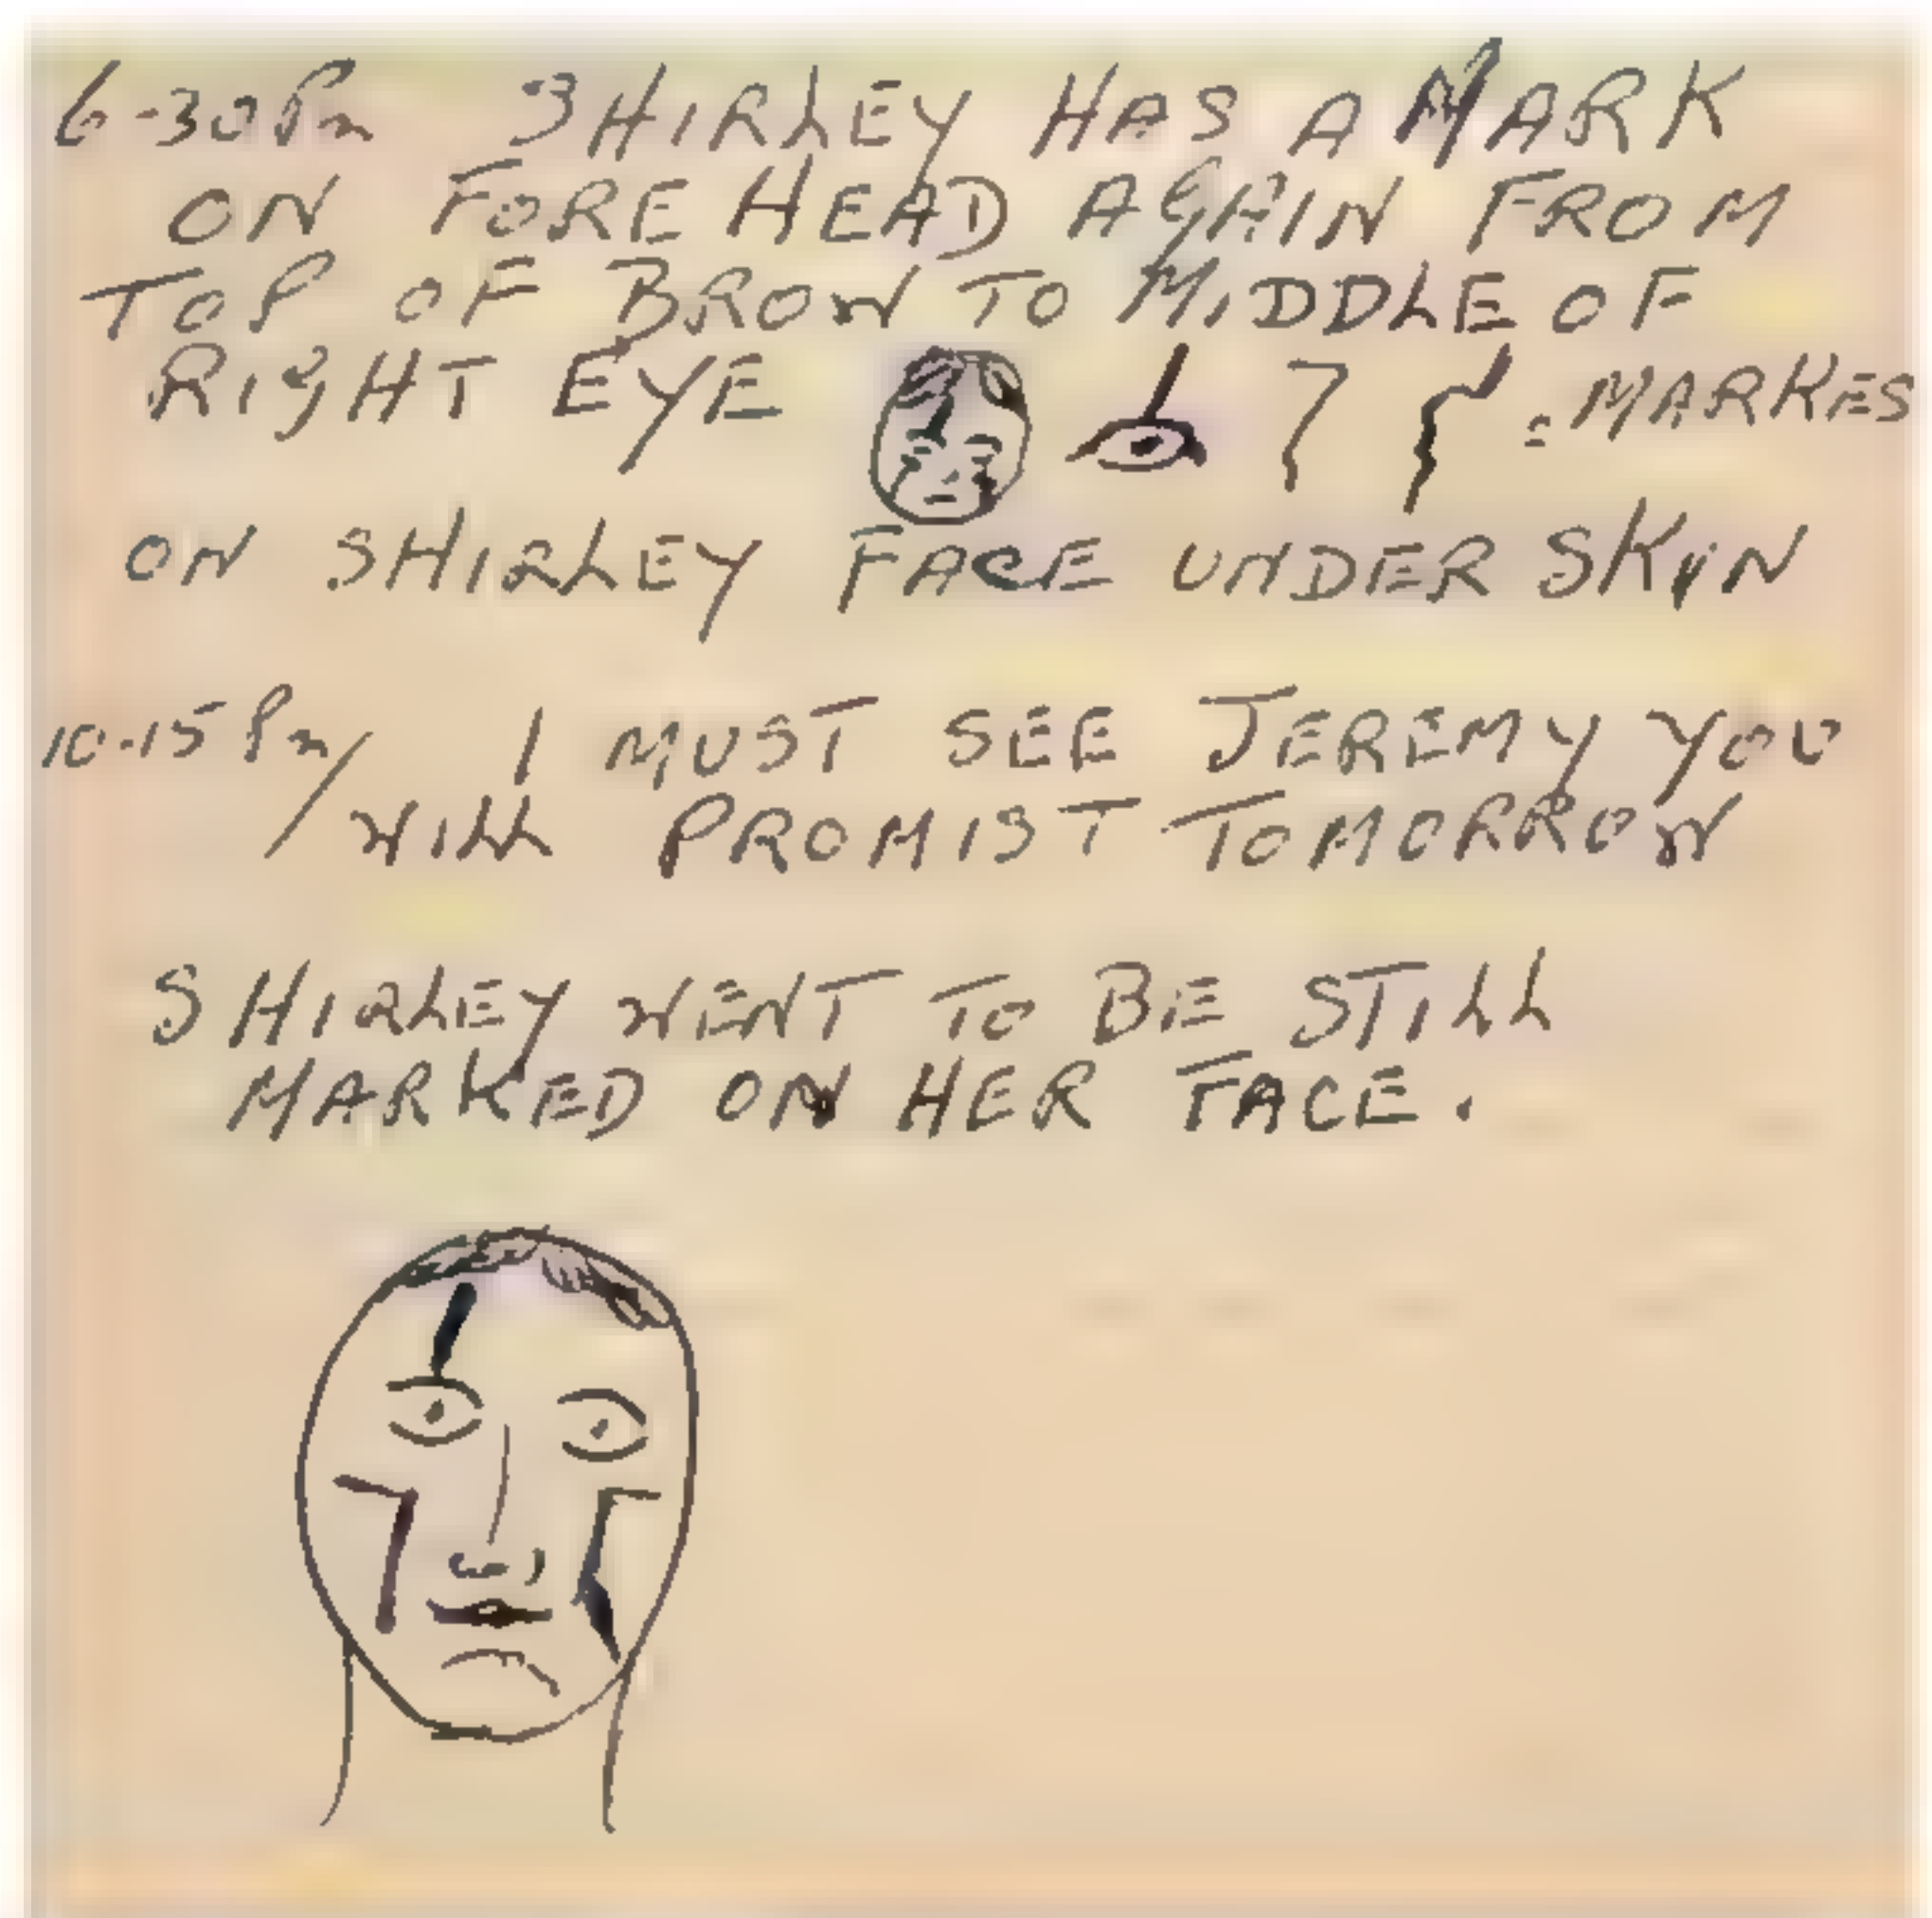 6-30 Pm SHIRLEY HAS A MARK
ON FOREHEAD AGAIN FROM
TOP OF BROW TO MIDDLE OF
RIGHT EYE = MARKES
ON SHIRLEY FACE UNDER SKIN
10-15 Pm / I MUST SEE JEREMY YOU
WILL PROMIST TOMORROW
SHIRLEY WENT TO BE STILL
MARKED ON HER FACE.